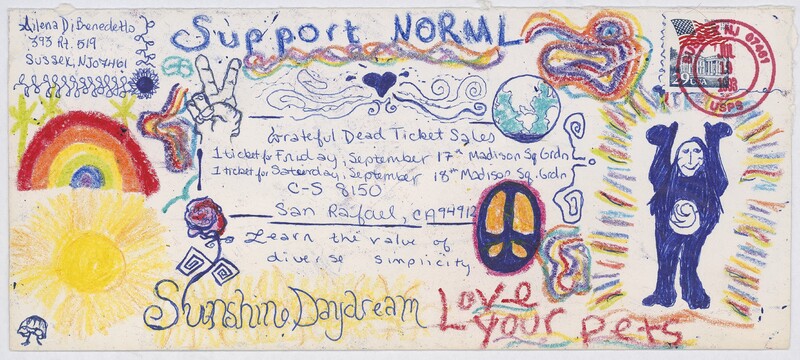 Ailena DiBenedetto
393 Rt. 519
Sussex, NJ 07461
Support NORML
NJ 07461
JUL
19
USPS
29
Grateful Dead Ticket Sales
1 ticket for Friday, September 17th Madison Sq. Grdn
1 ticket for Saturday, September 18th Madison Sq. Grdn
C-S 8150
San Rafael, CA 94912
Learn the value of
diverse simplicity
Sunshine Daydream
Love
your pets